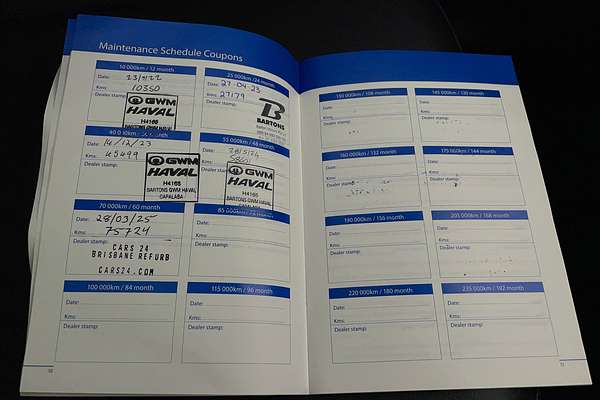 Maintenance Schedule Coupons
10 000km / 12 month
Date: 23/3/22
Kms: 10350
Dealer stamp:
GWM
HAVAL
H4168
BARTONS GWM HAVAL
25 000km / 24 month
Date: 27-04-23
Kms: 27179
Dealer stamp:
B
BARTONS
40 000km
Date: 14/12/23
Kms: 45499
Dealer stamp:
GWM
HAVAL
H4168
BARTONS GWM HAVAL
CAPALABA
55 000km / 48 month
Date:
Kms:
Dealer stamp:
GWM
HAVAL
H4168
BARTONS GWM HAVAL
CAPALABA
70 000km / 60 month
Date: 28/03/25
Kms: 75724
Dealer stamp:
CARS 24
BRISBANE REFURB
CARS24.COM
85 000km
Date:
Kms:
Dealer stamp:
100 000km / 84 month
Date:
Kms:
Dealer stamp:
115 000km / 96 month
Date:
Kms:
Dealer stamp:
130 000km / 108 month
Date:
Kms:
Dealer stamp:
145 000km / 120 month
Date:
Kms:
Dealer stamp:
160 000km / 132 month
Date:
Kms:
Dealer stamp:
175 000km / 144 month
Date:
Kms:
Dealer stamp:
190 000km / 156 month
Date:
Kms:
Dealer stamp:
205 000km / 168 month
Date:
Kms:
Dealer stamp:
220 000km / 180 month
Date:
Kms:
Dealer stamp:
235 000km / 192 month
Date:
Kms:
Dealer stamp: